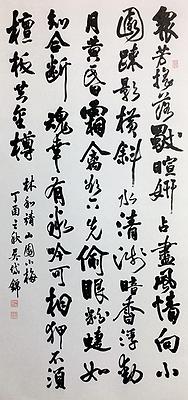 眾芳搖落獨暄妍占盡風情向小
園疎影橫斜水清淺暗香浮動
月黃昏霜禽欲下先偷眼粉蝶如
知合斷魂幸有微吟可相狎不須
檀板共金樽
林和靖山園小梅
丁酉之秋吳岱錦